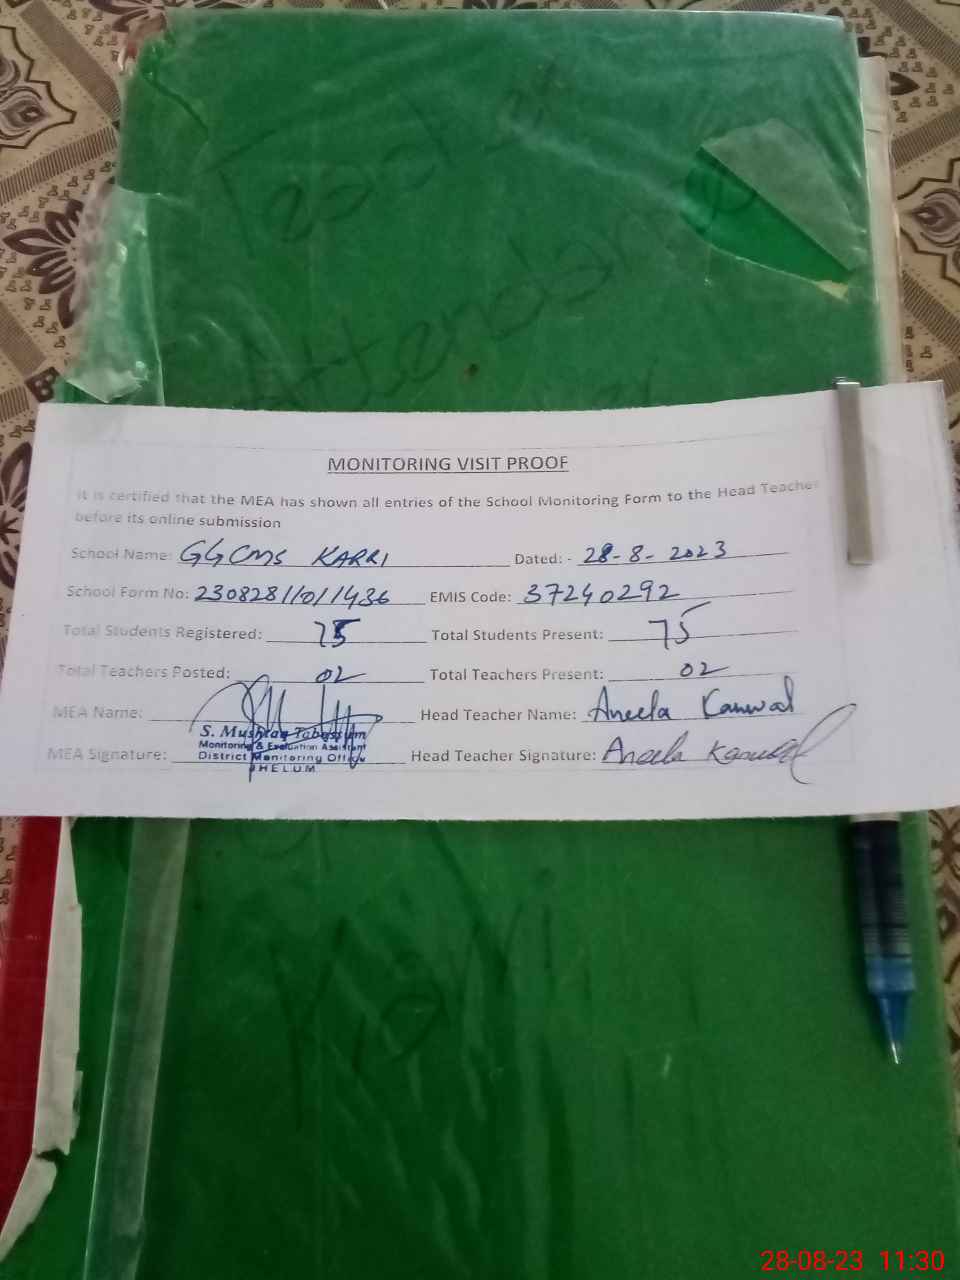 Teacher
Attendance
MONITORING VISIT PROOF
It is certified that the MEA has shown all entries of the School Monitoring Form to the Head Teacher
before its online submission
School Name: GGCMS KARRI Dated: - 28-8-2023
School Form No: 23082811011436 EMIS Code: 37240292
Total Students Registered: 75 Total Students Present: 75
Total Teachers Posted: 02 Total Teachers Present: 02
MEA Name: Head Teacher Name: Aneela Kanwal
S. Mushtaq Tabassum
Monitoring & Evaluation Assistant
MEA Signature: District Monitoring Office Head Teacher Signature: Aneela Kanwal
JHELUM
Karri
28-08-23 11:30